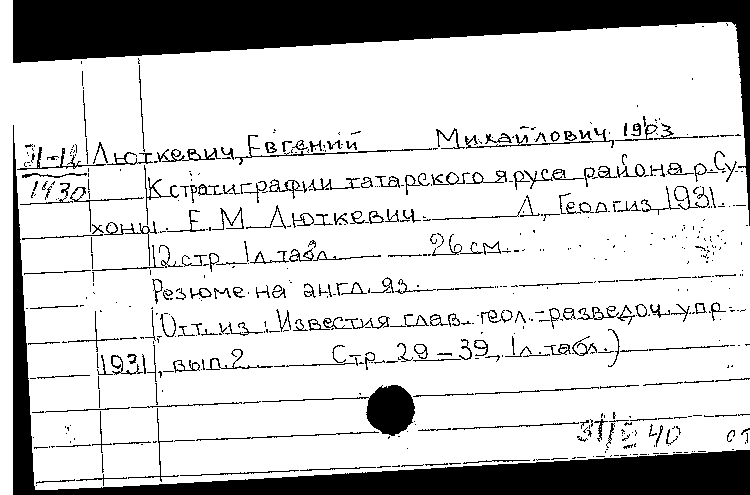 Люткевич, Евгений Михайлович, 1903
31-12
1430
К стратиграфии татарского яруса района р. Су-
хоны. Е. М. Люткевич. Л., Геолгиз, 1931.
12 стр., 1 л. табл. 26 см.
Резюме на англ. яз.
(Отт. из: Известия глав. геол.-разведоч. упр.
1931, вып. 2 Стр. 29-39, 1 л. табл.)
40 от